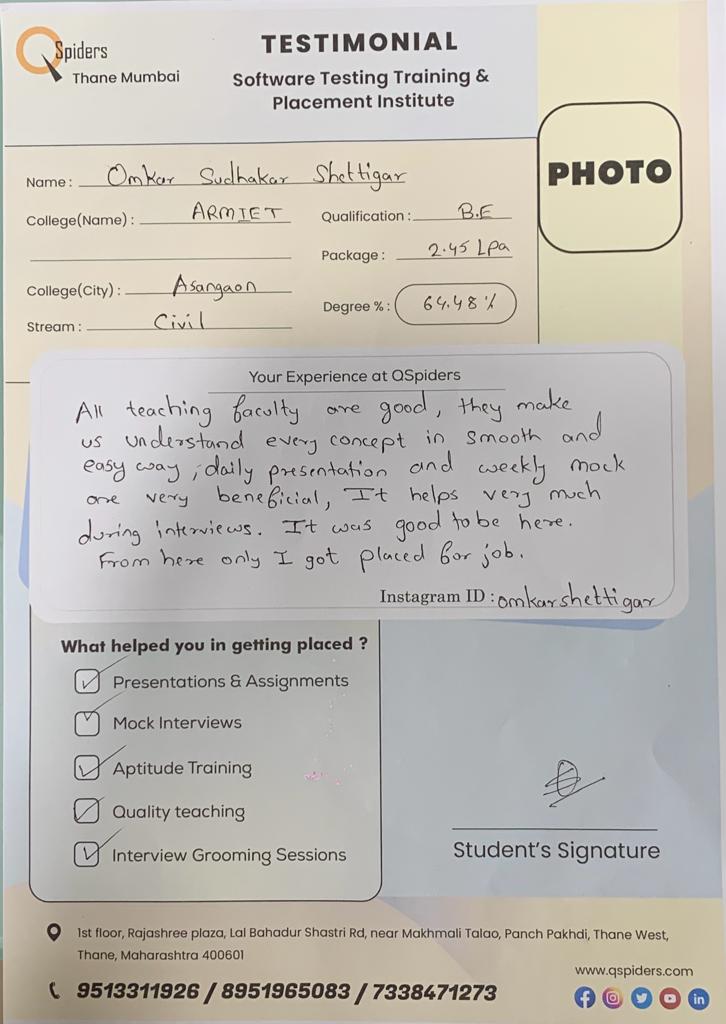 QSpiders
Thane Mumbai
TESTIMONIAL
Software Testing Training &
Placement Institute
PHOTO
Name : Omkar Sudhakar Shettigar
College(Name) : ARMIET
Qualification : B.E
Package : 2.45 Lpa
College(City) : Asangaon
Degree % : 64.48 %
Stream : Civil
Your Experience at QSpiders
All teaching faculty are good, they make
us understand every concept in smooth and
easy way, daily presentation and weekly mock
are very beneficial, It helps very much
during interviews. It was good to be here.
From here only I got placed for job.
Instagram ID : omkarshettigar
What helped you in getting placed ?
Presentations & Assignments
Mock Interviews
Aptitude Training
Quality teaching
Interview Grooming Sessions
Student's Signature
1st floor, Rajashree plaza, Lal Bahadur Shastri Rd, near Makhmali Talao, Panch Pakhdi, Thane West,
Thane, Maharashtra 400601
www.qspiders.com
9513311926 / 8951965083 / 7338471273